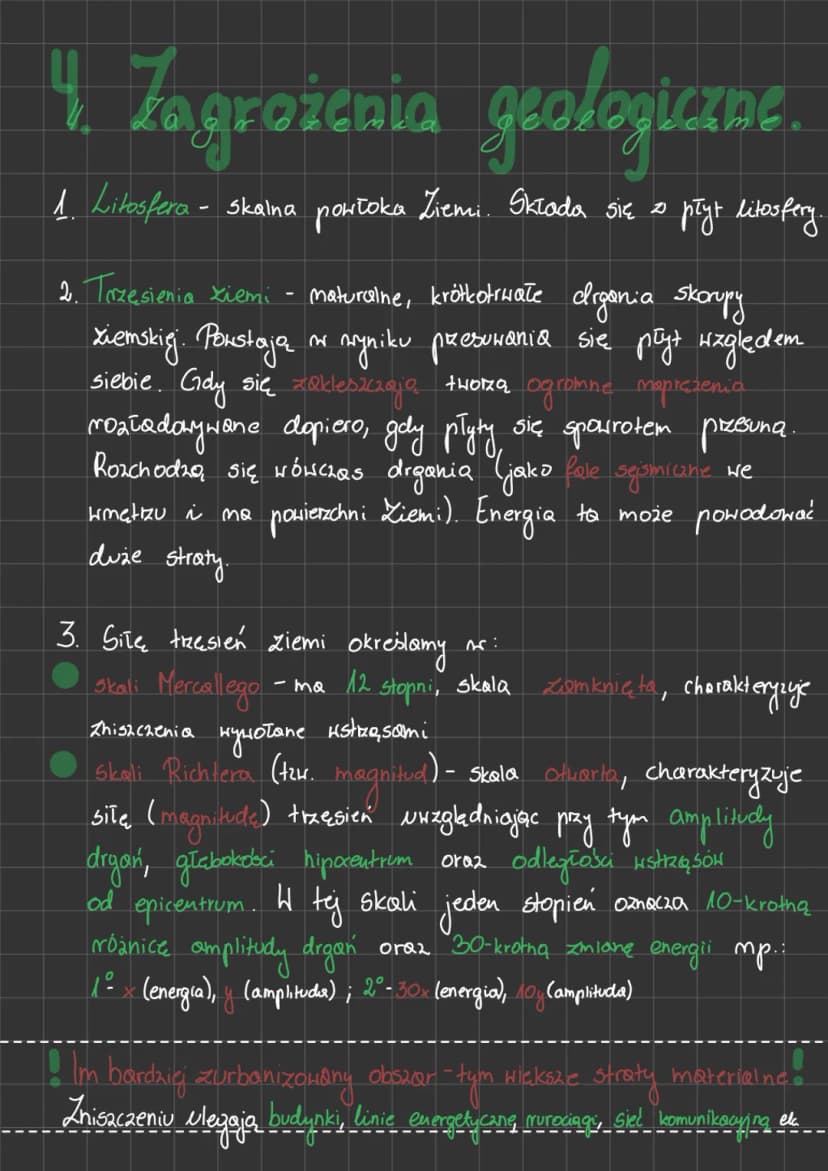 4. Zagrożenia geologiczne.
1. Litosfera - skalna powłoka Ziemi. Składa się z płyt litosfery.
2. Trzęsienia ziemi - naturalne, krótkotrwałe drgania skorupy
ziemskiej. Powstają w wyniku przesuwania się płyt względem
siebie. Gdy się zakleszczają tworzą ogromne naprężenia
rozładowywane dopiero, gdy płyty się spowrotem przesuną.
Rozchodzą się wówczas drgania (jako fale sejsmiczne we
wnętrzu i na powierzchni Ziemi). Energia ta może powodować
duże straty.
3. Siłę trzęsień ziemi określamy w:
skali Mercallego - ma 12 stopni, skala zamknięta, charakteryzuje
zniszczenia wywołane wstrząsami
skali Richtera (tzw. magnitud) - skala otwarta, charakteryzuje
siłę (magnitudę) trzęsień uwzględniając przy tym amplitudy
drgań, głębokości hipocentrum oraz odległości wstrząsów
od epicentrum. W tej skali jeden stopień oznacza 10-krotną
różnicę amplitudy drgań oraz 30-krotną zmianę energii np.:
1° - x (energia), y (amplituda) ; 2° - 30x (energia), 10y (amplituda)
! Im bardziej zurbanizowany obszar - tym większe straty materialne !
Zniszczeniu ulegają budynki, linie energetyczne, rurociągi, sieć komunikacyjna etc